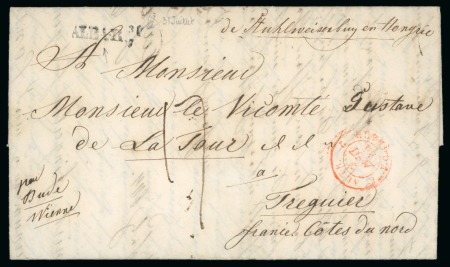 31 Juillet
de Stuhlweisenburg en Hongrie
A Monsieur
Monsieur le Vicomte Gustave
de La Tour
a
Treguier
france Côtes du nord
par
Bude
Vienne